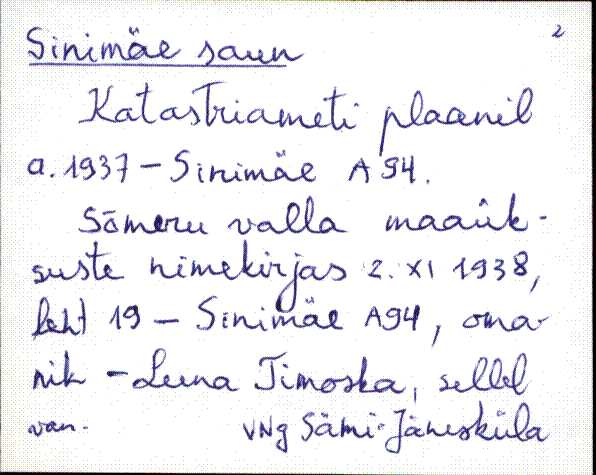 2
Sinimäe saun
Katastriameti plaanil
a. 1937 - Sinimäe A 94.
Sõmeru valla maaük-
suste nimekirjas 2. XI 1938,
leht 19 - Sinimäe A94, oma-
nik - Leena Timoska, sellel
van. VNg Sämi-Jänesküla